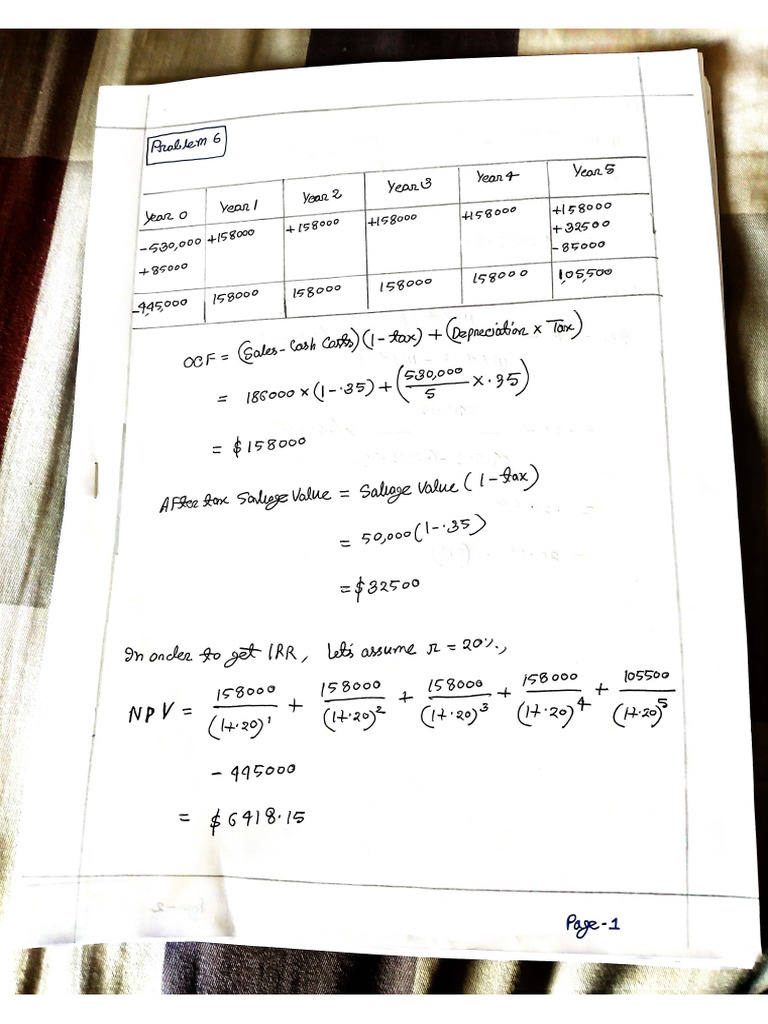 Problem 6
Year 0 Year 1 Year 2 Year 3 Year 4 Year 5
-530,000 +158000 +158000 +158000 +158000 +158000
+85000 +32500
-85000
-445,000 158000 158000 158000 158000 105,500
OCF = (Sales - Cash Costs)(1 - tax) + (Depreciation × Tax)
= 186000 × (1 - .35) + (530,000/5 × .35)
= $158000
After tax Salvage Value = Salvage Value (1 - tax)
= 50,000 (1 - .35)
= $32500
In order to get IRR, let's assume r = 20%,
NPV = 158000/(1+.20)^1 + 158000/(1+.20)^2 + 158000/(1+.20)^3 + 158000/(1+.20)^4 + 105500/(1+.20)^5
- 445000
= $6418.15
Page-1